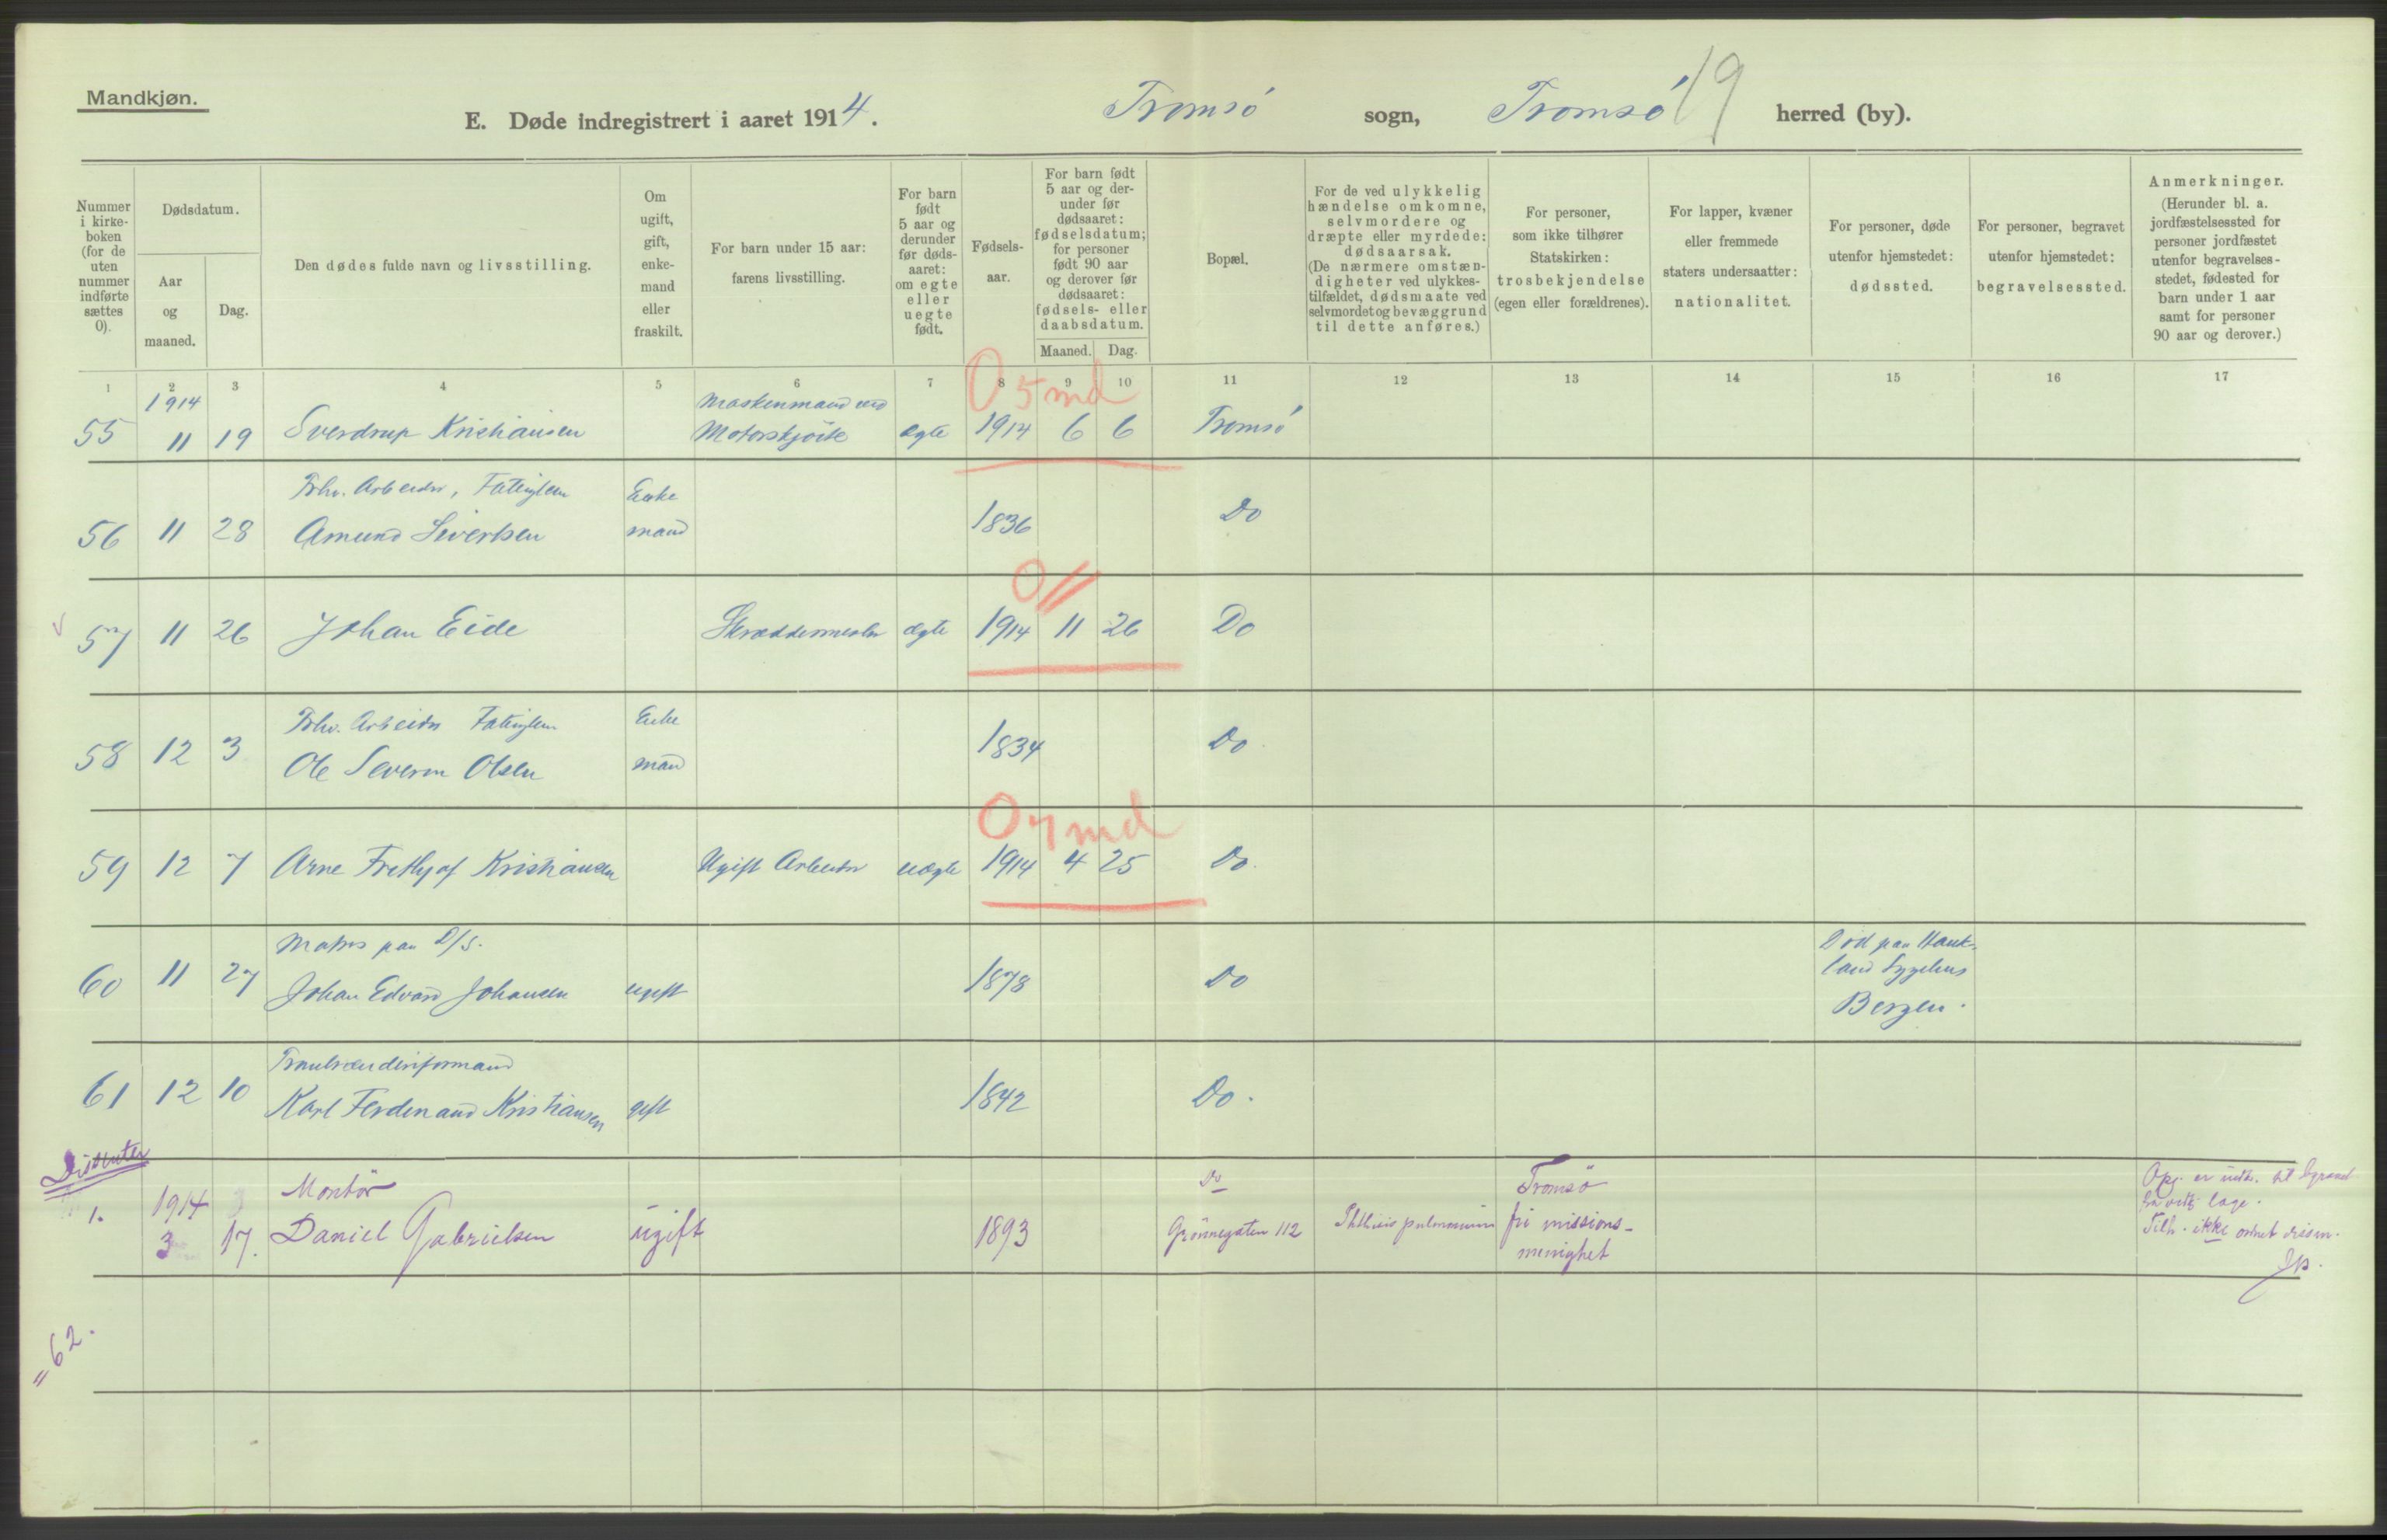 Mandkjøn.
E. Døde indregistrert i aaret 1914. Tromsø sogn, Tromsø herred (by).
19
Nummer i kirke-boken (for de uten nummer indførte sættes 0).
Dødsdatum.
Aar og maaned.
Dag.
Den dødes fulde navn og livsstilling.
Om ugift, gift, enke-mand eller fraskilt.
For barn under 15 aar: farens livsstilling.
For barn født 5 aar og derunder før døds-aaret: om egte eller uegte født.
Fødsels-aar.
For barn født 5 aar og der-under før dødsaaret: fødselsdatum; for personer født 90 aar og derover før dødsaaret: fødsels- eller daabsdatum.
Maaned. Dag.
Bopæl.
For de ved ulykkelig hændelse omkomne, selvmordere og dræpte eller myrdede: dødsaarsak. (De nærmere omstæn-digheter ved ulykkes-tilfældet, dødsmaate ved selvmordet og bevæggrund til dette anføres.)
For personer, som ikke tilhører Statskirken: trosbekjendelse (egen eller forældrenes).
For lapper, kvæner eller fremmede staters undersaatter: nationalitet.
For personer, døde utenfor hjemstedet: dødssted.
For personer, begravet utenfor hjemstedet: begravelsessted.
Anmerkninger. (Herunder bl. a. jordfæstelsessted for personer jordfæstet utenfor begravelses-stedet, fødested for barn under 1 aar samt for personer 90 aar og derover.)
1 2 3 4 5 6 7 8 9 10 11 12 13 14 15 16 17
0 5 md
1914 Maskinmand ved
55 11 19 Sverdrup Kristiansen Motorskjöite egte 1914 6 6 Tromsö
Fhv. Arbeider, Fattiglem Enke
56 11 28 Amund Sivertsen mand 1836 Do
0 //
57 11 26 Johan Eide Skræddermester ægte 1914 11 26 Do
Fhv. Arbeider Fattiglem Enke
58 12 3 Ole Severin Olsen mand 1834 Do
0 7 md
59 12 7 Arne Frithjof Kristiansen Ugift Arbeider uægte 1914 4 25 Do.
Matros paa D/S. Död paa Hauk-
60 11 27 Johan Edvard Johansen ugift 1878 Do land Sygehus
Bergen.
Tranbrænderiformand
61 12 10 Karl Ferdinand Kristiansen gift 1842 Do.
Dissenter
1. 1914 Montör Do Tromsö
3 17. Daniel Gabrielsen ugift 1893 Grönnegaten 112 Phthisis pulmonum fri missions-
menighet
Opg. er indh.
læge.
Tilh. ikke
= 62.